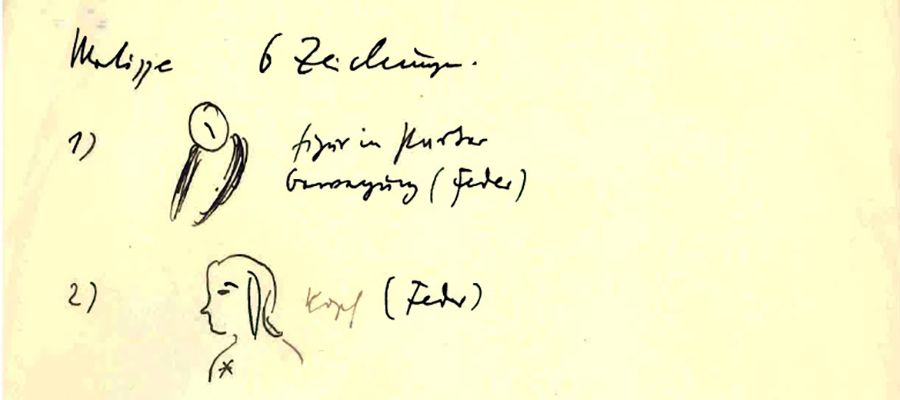 Matisse 6 Zeichnungen.
1) Figur in starker
Bewegung (Feder)
2) Kopf (Feder)